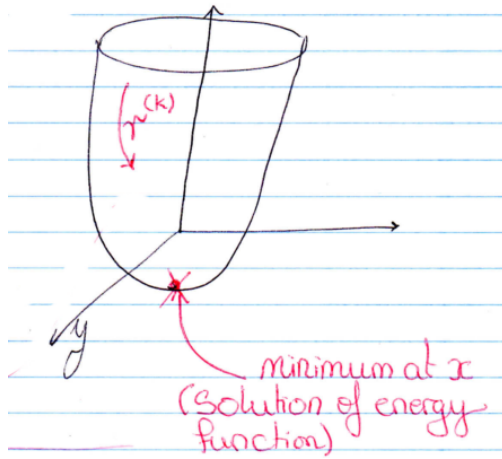 x^(k)
y
minimum at x
(solution of energy
function)